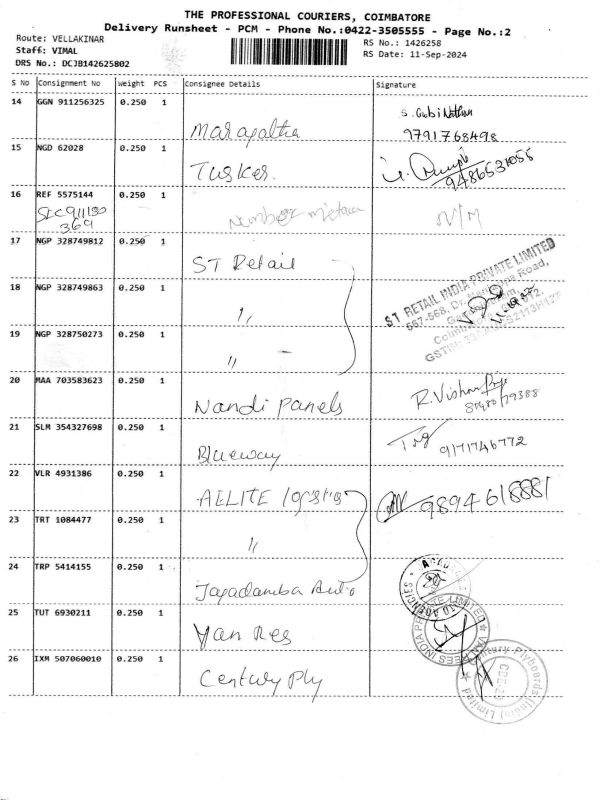 THE PROFESSIONAL COURIERS, COIMBATORE
Delivery Runsheet - PCM - Phone No.:0422-3505555 - Page No.:2
Route: VELLAKINAR
RS No.: 1426258
Staff: VIMAL
RS Date: 11-Sep-2024
DRS No.: DCJB142625802
S No Consignment No Weight PCS Consignee Details Signature
14 GGN 911256325 0.250 1
9791768498
15 NGD 62028 0.250 1 Tusker.
9486531055
16 REF 5575144 0.250 1 N/M
17 NGP 328749812 0.250 1 ST Retail
ST RETAIL INDIA PRIVATE LIMITED
18 NGP 328749863 0.250 1 "
19 NGP 328750273 0.250 1 " -
20 MAA 703583623 0.250 1 Nandi panels
21 SLM 354327698 0.250 1 Blueway
9171746772
22 VLR 4931386 0.250 1 AELITE logistics
9894618881
23 TRT 1084477 0.250 1 "
24 TRP 5414155 0.250 1 Jagadamba Auto
25 TUT 6930211 0.250 1 Van Rees
26 IXM 507060010 0.250 1 Century Ply
Century Plyboards (India) Limited